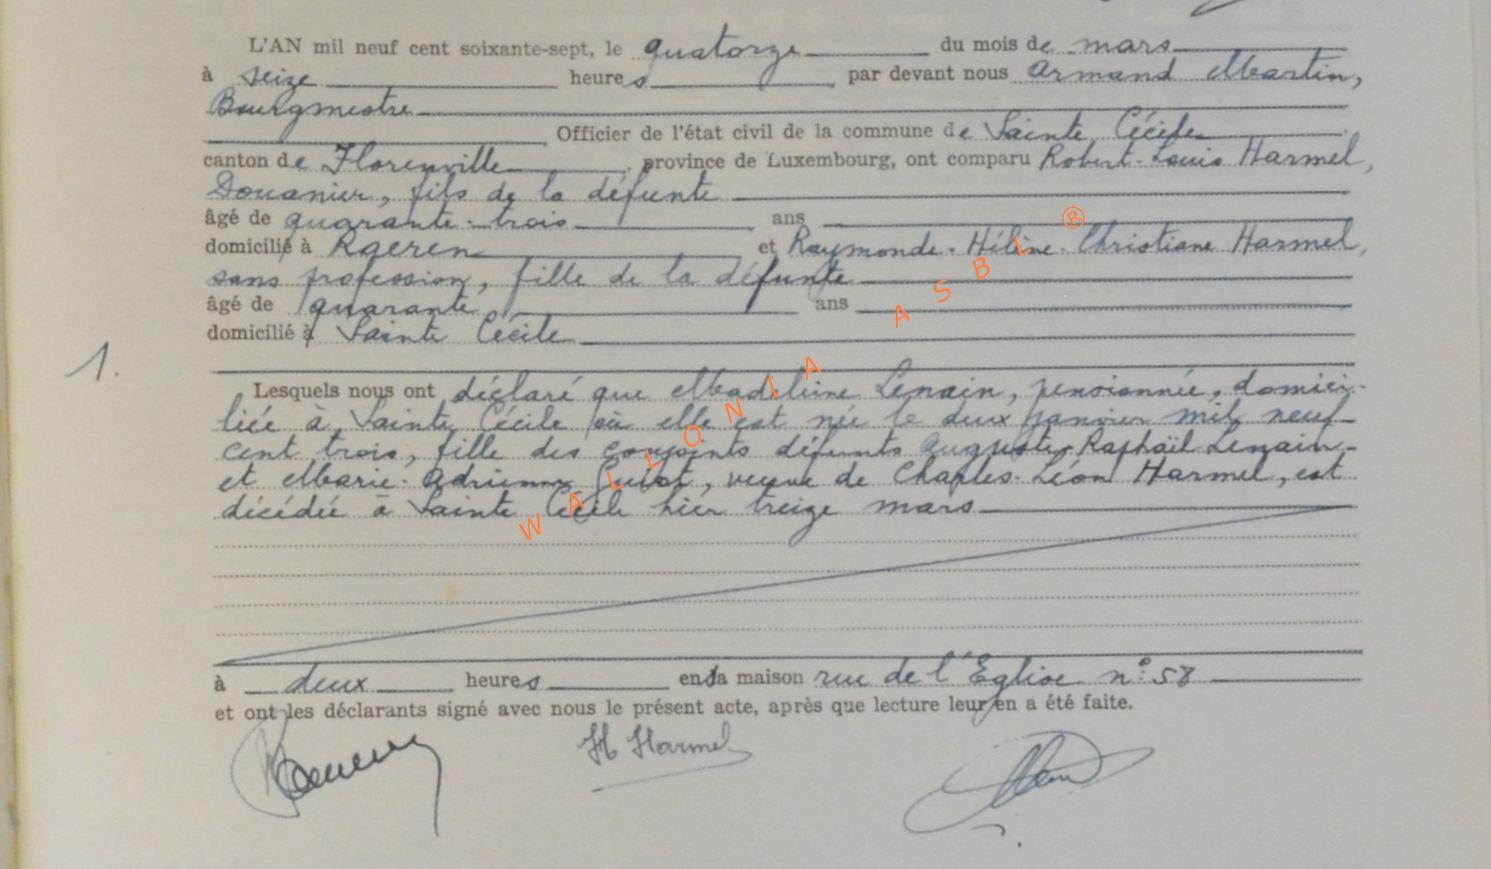 L'AN mil neuf cent soixante-sept, le quatorze du mois de mars
à seize heures par devant nous Armand Martin,
Bourgmestre
Officier de l'état civil de la commune de Sainte Cécile
canton de Florenville, province de Luxembourg, ont comparu Robert-Louis Harmel,
Douanier, fils de la défunte
âgé de quarante-trois ans
domicilié à Raeren et Raymonde-Hélène-Christiane Harmel,
sans profession, fille de la défunte
âgé de quarante ans
domicilié à Sainte Cécile
1.
Lesquels nous ont déclaré que Madeleine Lenain, pensionnée, domici-
liée à Sainte Cécile où elle est née le deux janvier mil neuf
cent trois, fille des conjoints défunts Auguste-Raphaël Lenain
et Marie-Adrienne, veuve de Charles-Léon Harmel, est
décédée à Sainte Cécile hier treize mars
à deux heures en sa maison rue de l'Eglise n° 58
et ont les déclarants signé avec nous le présent acte, après que lecture leur en a été faite.
H Harmel
WALLONIA ASBL ®